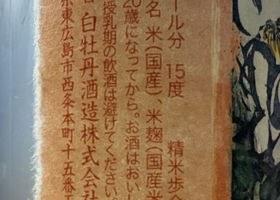 ール分 15度 精米歩合
名 米(国産)、米麹(国産米
20歳になってから。お酒はおいし
授乳期の飲酒は避けてください。
白牡丹酒造株式会社
県東広島市西条本町十五番